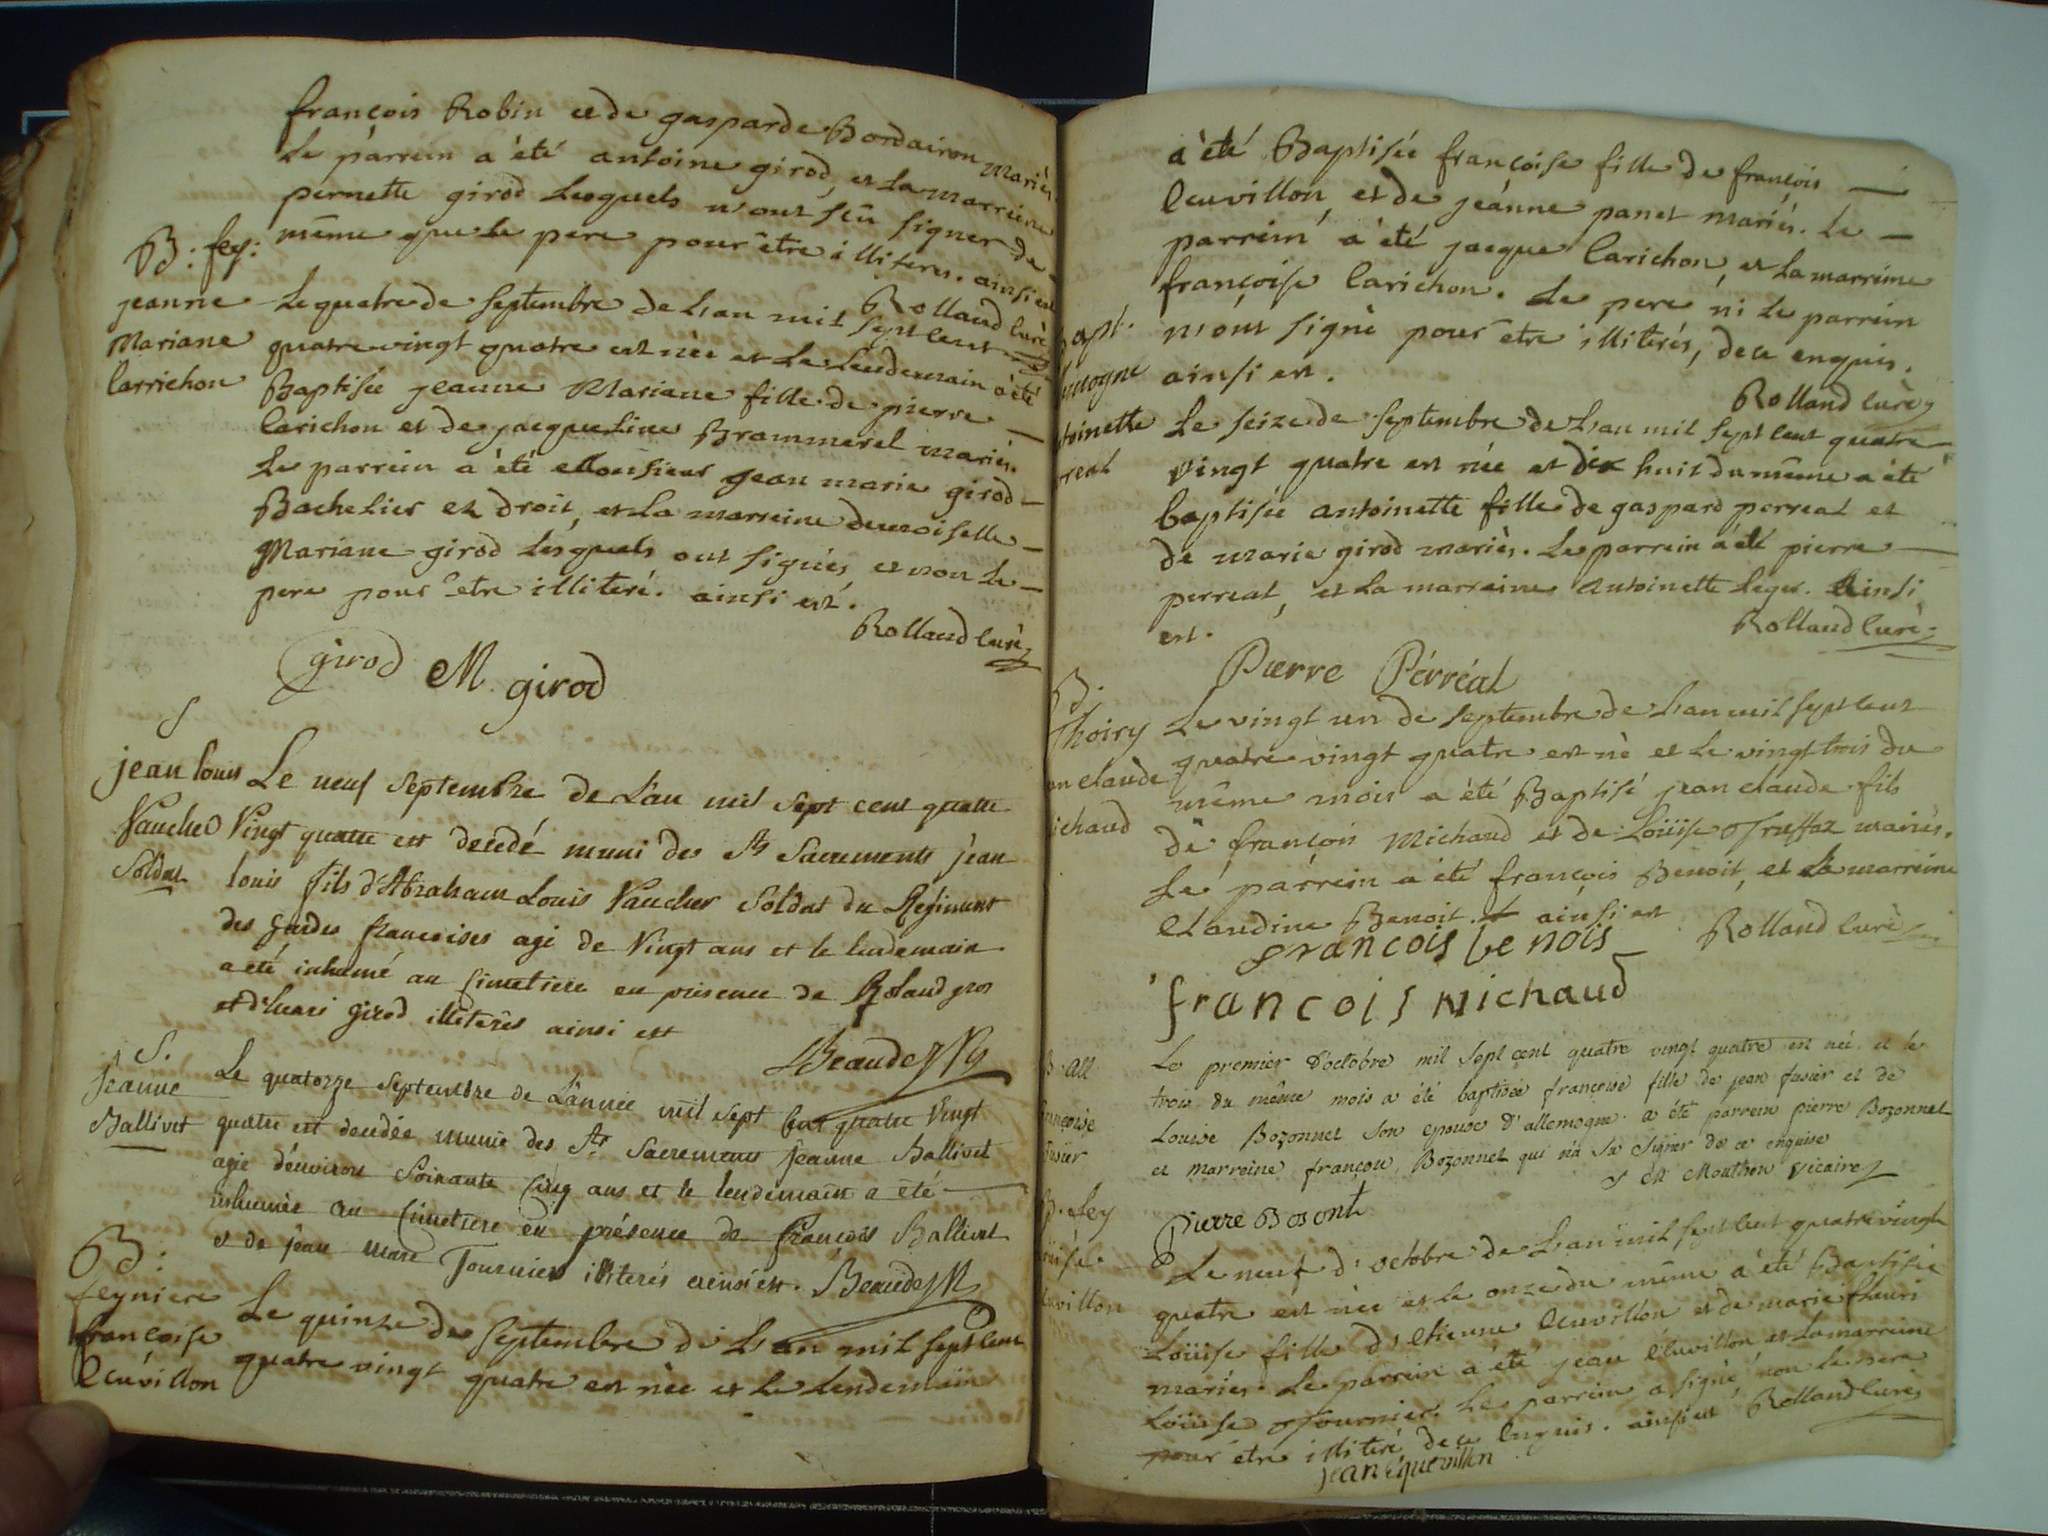 françois Robin et de gasparde Bordairon mariés.
Le parrein a été antoine girod, et la marreine
pernette girod lesquels n'ont sçû signer de
même que le pere pour être illiteres. ainsi est
Rolland curé
B: fey:
jeanne
Mariane
Carrichon
Le quatre de septembre de l'an mil sept cent
quatre vingt quatre est née et le lendemain a été
Baptisée jeanne Mariane fille de pierre
Carichon et de jacqueline Brammerel mariés.
Le parrein a été Monsieur jean marie girod
Bachelier en droit, et la marreine demoiselle
Mariane girod lesquels ont signés, et non le
pere pour etre illiteré. ainsi est.
Rolland curé
girod M. girod
S
jean louis
Vaucher
Soldat
Le neuf septembre de L'an mil sept cent quatre
Vingt quatre est decedé muni des Sts Sacrements jean
louis fils d'Abraham Louis Vaucher Soldat du Regiment
des gardes francoises agé de Vingt ans et le lendemain
a eté inhumé au Cimetiere en présence de Roland gros
et d'henri girod illiterés ainsi est
S.
Jeanne
Ballivet
Le quatorze Septembre de L'année mil sept Cent quatre Vingt
quatre est decedée munie des Sts Sacrements Jeanne Ballivet
agée d'environ Soixante Cinq ans et le lendemain a été
inhumée au Cimetiere en présence de François Ballivet
et de jean marc Tournier illiterés ainsi est.
B:
feyniere
françoise
Ecuvillon
Le quinze de septembre de L'an mil sept cent
quatre vingt quatre est née et le lendemain
a été Baptisée françoise fille de françois
Ecuvillon, et de jeanne panet mariés. Le
parrein a été jacque Carichon, et la marreine
françoise Carichon. Le pere ni le parrein
n'ont signé pour etre illiterés, de ce enquis.
ainsi est.
Rolland curé
apt.
toinette
rreal
Le seize de septembre de l'an mil sept cent quatre
vingt quatre est née et dix huit du même a été
baptisée antoinette fille de gaspard perreal et
de marie girod mariés. Le parrein a été pierre
perreal, et la marreine antoinette Leger. Ainsi
est.
Rolland curé
Pierre Pérréal
B.
Thoiry
an claude
ichaud
Le vingt un de septembre de l'an mil sept cent
quatre vingt quatre est né et le vingt trois du
même mois a été Baptisé jean claude fils
de françois Michaud et de Loüise Truffaz mariés.
Le parrein a été françois Benoit, et La marreine
Claudine Benoit. ainsi est
Rolland curé
francois be nois
francois Michaud
B. All
françoise
fusier
Le premier d'octobre mil sept cent quatre vingt quatre est née et le
trois du même mois a été baptisée françoise fille de jean fusier et de
Louise Bozonnet son epouse d'allemogne. a été parrein pierre Bozonnet
et marreine françoise Bozonnet qui n'a sû signer de ce enquise
Mouthon vicaire
Pierre Bosont
B. fey
ouise
cuvillon
Le neuf d'octobre de l'an mil sept cent quatre vingt
quatre est née et le onze du même a été Baptisée
Loüise fille d'etienne Ecuvillon et de marie fleuri
mariés. Le parrein a été jean Ecuvillon, et la marreine
Loüise Tournier. Le parrein a signé, non le pere
pour etre illiteré de ce enquis. ainsi est Rolland curé
jean Equevillon